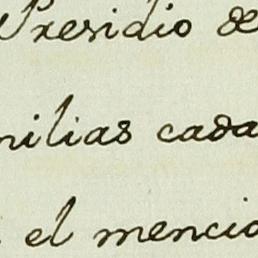 Presidio de
milias cada
el mencio